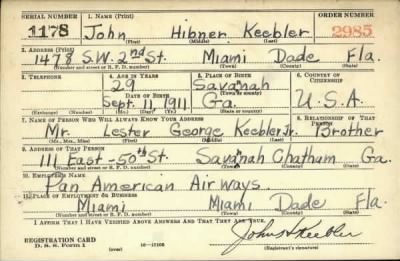 SERIAL NUMBER 1. NAME (Print) ORDER NUMBER
1178 John Hibner Keebler 2985
(First) (Middle) (Last)
2. ADDRESS (Print)
1478 S.W. 2nd St. Miami Dade Fla.
(Number and street or R. F. D. number) (Town) (County) (State)
3. TELEPHONE 4. AGE IN YEARS 5. PLACE OF BIRTH 6. COUNTRY OF CITIZENSHIP
29 Savanah
DATE OF BIRTH (Town or county)
Sept. 11 1911 Ga. U.S.A
(Exchange) (Number) (Mo.) (Day) (Yr.) (State or country)
7. NAME OF PERSON WHO WILL ALWAYS KNOW YOUR ADDRESS 8. RELATIONSHIP OF THAT PERSON
Mr. Lester George Keebler Jr. Brother
(Mr., Mrs., Miss) (First) (Middle) (Last)
9. ADDRESS OF THAT PERSON
111 East-50th St. Savanah Chatham Ga.
(Number and street or R. F. D. number) (Town) (County) (State)
10. EMPLOYER'S NAME
Pan American Airways
11. PLACE OF EMPLOYMENT OR BUSINESS
Miami Miami Dade Fla.
(Number and street or R. F. D. number) (Town) (County) (State)
I AFFIRM THAT I HAVE VERIFIED ABOVE ANSWERS AND THAT THEY ARE TRUE.
REGISTRATION CARD John H Keebler
D. S. S. Form 1 (over) 16-17105 (Registrant's signature)